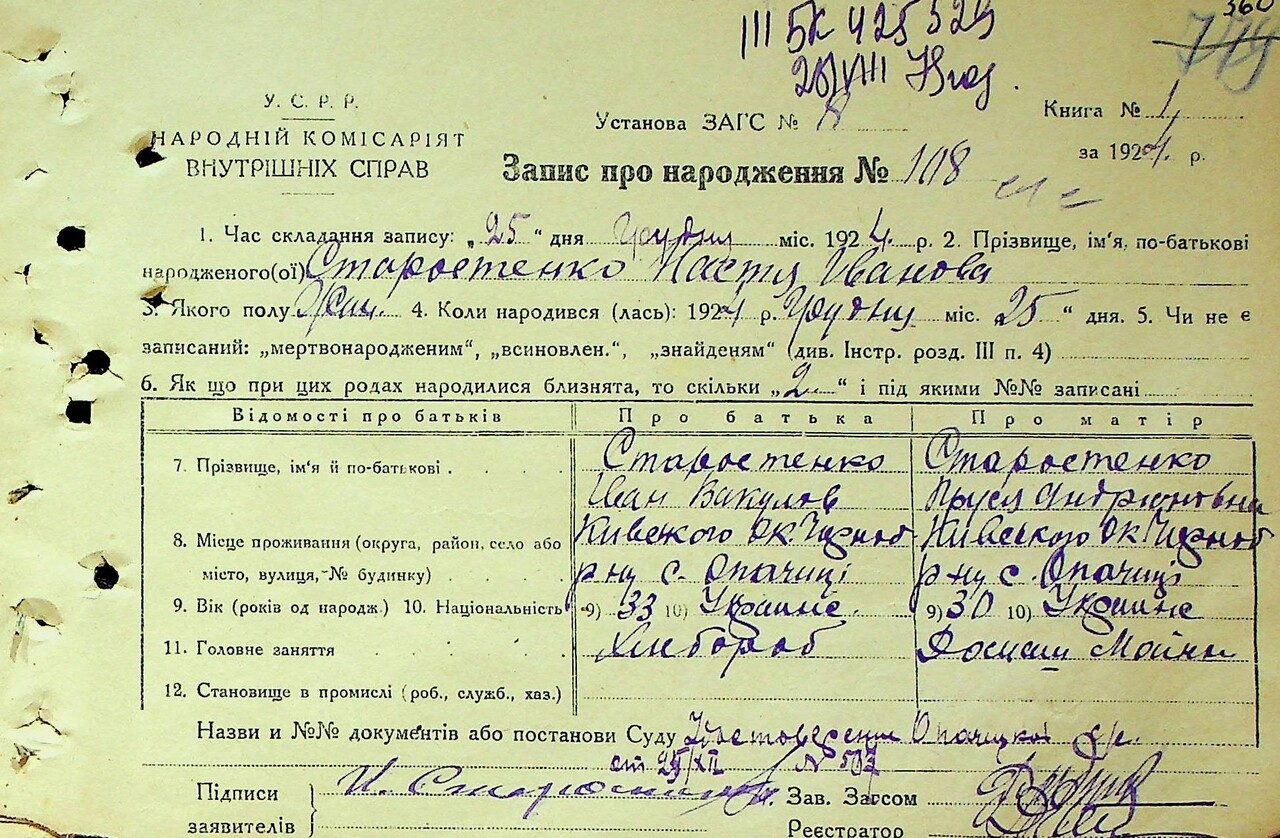 360
III БК 425529
719
28/VIII
У. С. Р. Р.
НАРОДНІЙ КОМІСАРІЯТ
ВНУТРІШНІХ СПРАВ
Установа ЗАГС №
Книга № 1
за 1924 р.
Запис про народження № 108
1. Час складання запису: „25“ дня Грудни міс. 1924 р. 2. Прізвище, ім'я, по-батькові
народженого(ої) Старостенко Настя Иванова
3. Якого полу Жін. 4. Коли народився (лась): 1924 р. Грудни міс. 25“ дня. 5. Чи не є
записаний: „мертвонародженим“, „всиновлен.“, „знайденям“ (див. Інстр. розд. III п. 4)
6. Як що при цих родах народилися близнята, то скільки „2“ і під якими №№ записані
Відомості про батьків Про батька Про матір
7. Прізвище, ім'я й по-батькові Старостенко Старостенко
Иван Вакулов Андріоновна
8. Місце проживання (округа, район, село або Київского Ок. Чорноб Київского Ок. Чорноб
місто, вулиця, № будинку) р-ну с. Опачиці р-ну с. Опачиці
9. Вік (років од народж.) 10. Національність 9) 33 10) Украине 9) 30 10) Украине
11. Головне заняття Хлібороб Домаш
12. Становище в промислі (роб., служб., хаз.)
Назви и №№ документів або постанови Суду Удостоверение Опачицкой с/р.
от 25/XII N 507
Підписи
заявителів
И. Старостенко
Зав. Загсом
Реєстратор